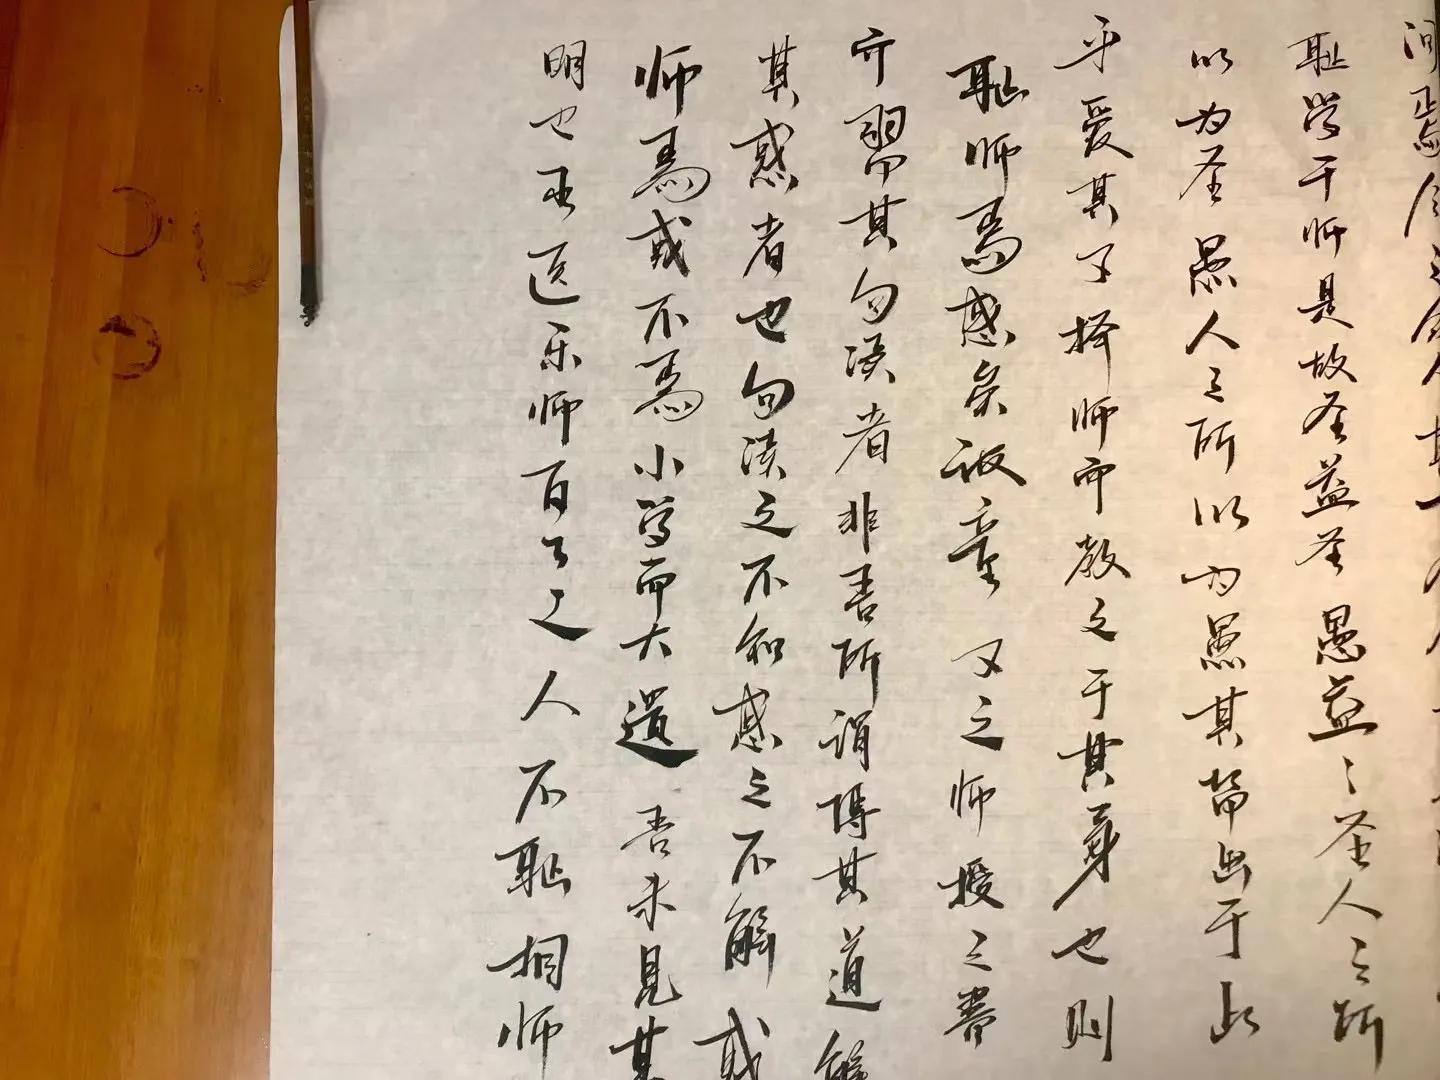 问焉今之众人其下
耻学于师是故圣益圣愚益〻圣人之所
以为圣愚人之所以为愚其皆出于此
乎爱其子择师而教之于其身也则
耻师焉惑矣彼童子之师授之書
而習其句读者非吾所谓傳其道解
其惑者也句读之不知惑之不解或
师焉或不焉小学而大遗吾未見其
明也巫医乐师百工之人不耻相师